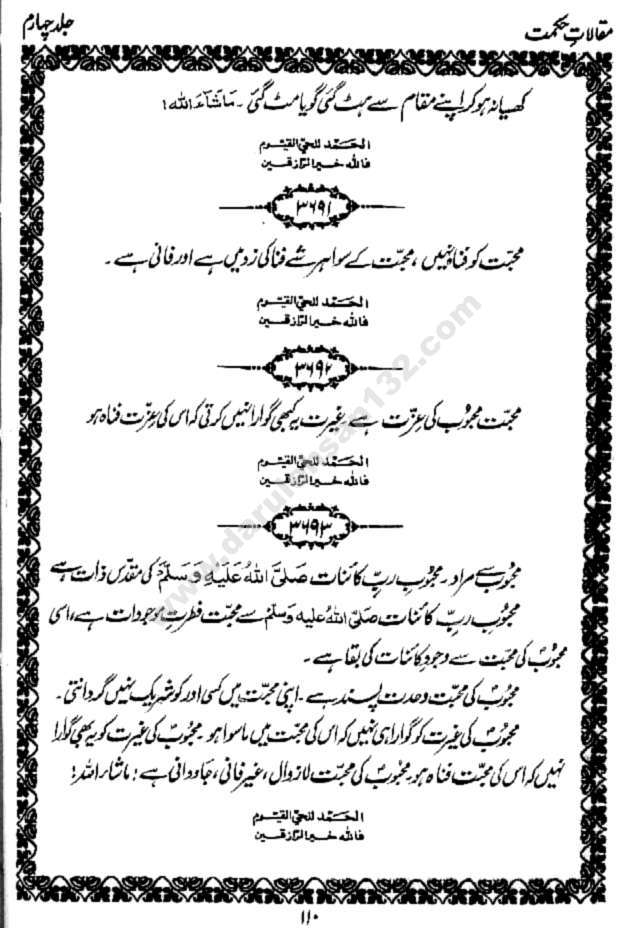 مقالاتِ حکمت
جلد چہارم
کھسیانہ ہو کر اپنے مقام سے ہٹ گئی گویا مٹ گئی ۔ مَا شَآءَ اللہ !
الحمد للحیّ القیّوم
فاللہ خیر الرّازقین
۳۶۹۱
محبّت کو فنا نہیں ، محبّت کے سوا ہر شے فنا کی زد میں ہے اور فانی ہے ۔
الحمد للحیّ القیّوم
فاللہ خیر الرّازقین
۳۶۹۲
محبّت محبُوب کی عِزّت ہے غیرت یہ کبھی گوارا نہیں کرتی کہ اس کی عِزّت فنا ہو
الحمد للحیّ القیّوم
فاللہ خیر الرّازقین
۳۶۹۳
محبُوب سے مراد ۔ محبُوبِ ربِّ کائنات صَلَّی اللہُ عَلَیْہِ وَسَلَّمْ کی مقدّس ذات ہے
محبُوبِ ربِّ کائنات صَلَّی اللہُ علیہ وَسَلَّمْ سے محبّت فطرتِ موجودات ہے ، اسی
محبُوبؐ کی محبّت سے وجودِ کائنات کی بقا ہے ۔
محبُوبؐ کی محبّت وحدت پسند ہے ۔ اپنی محبّت میں کسی اور کو شریک نہیں گردانتی ۔
محبُوبؐ کی غیرت کو گوارا ہی نہیں کہ اس کی محبّت میں ماسوا ہو ۔ محبُوبؐ کی غیرت کو یہ بھی گوارا
نہیں کہ اس کی محبّت فنا ہو ۔ محبُوبؐ کی محبّت لازوال ، غیر فانی ، جاودانی ہے ! ماشاء اللہ !
الحمد للحیّ القیّوم
فاللہ خیر الرّازقین
۱۱۰
www.darulehsan132.com